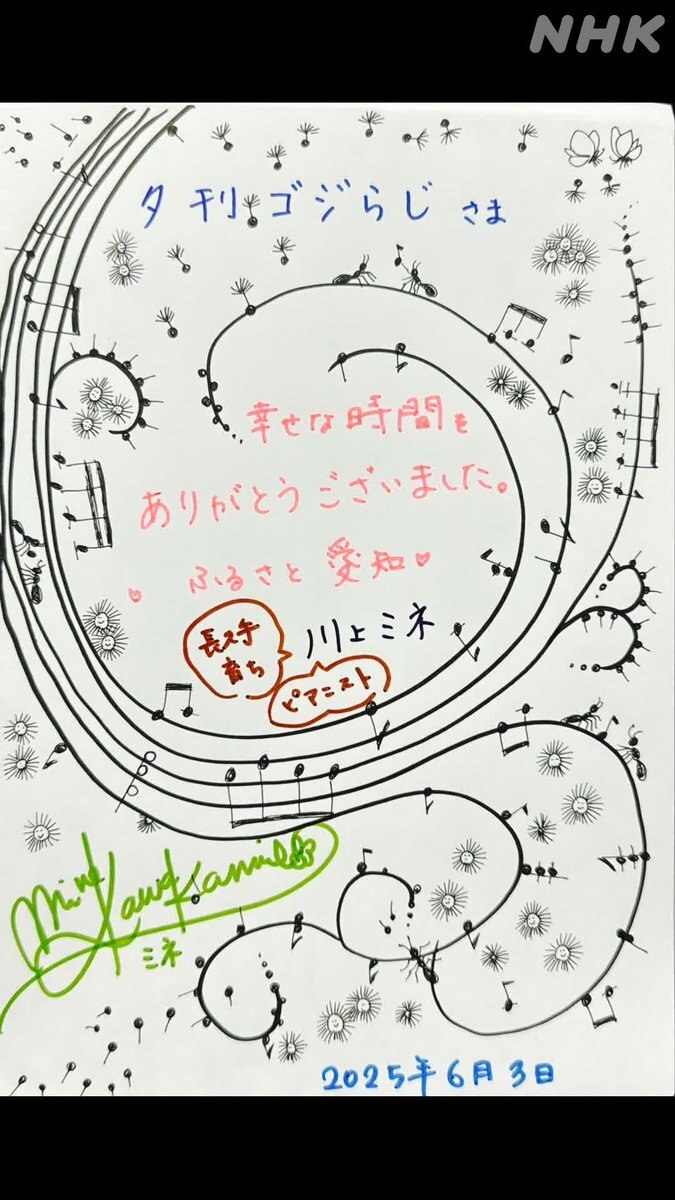 NHK
夕刊ゴジらじ さま
幸せな時間を
ありがとうございました。
♥ ふるさと 愛知 ♥
長久手
育ち
川上ミネ
ピアニスト
Mine Kawakami
ミネ
2025年6月3日